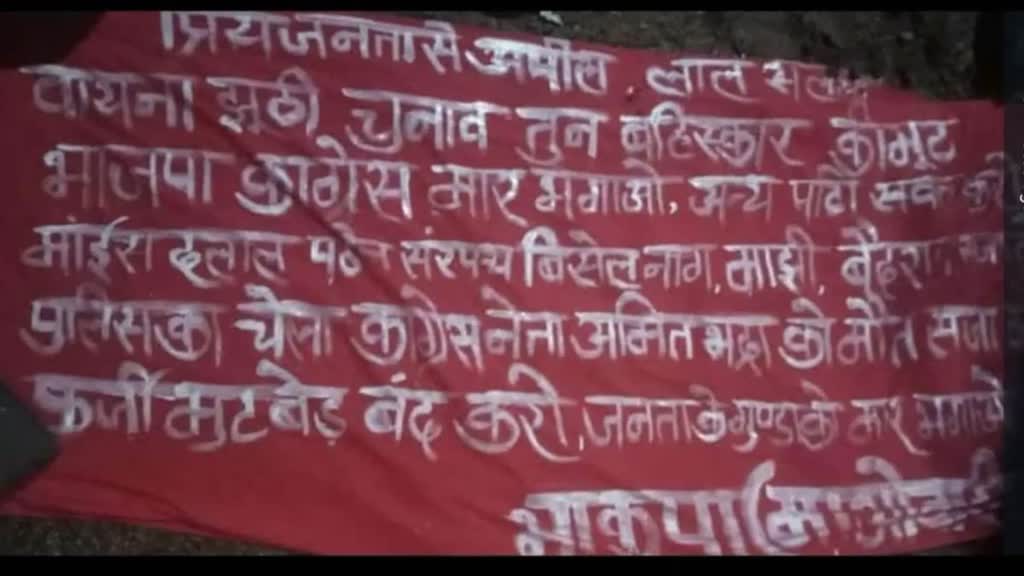 प्रिय जनता से अपील, लाल सलाम
वायना झुठी चुनाव तुन बहिस्कार कीमुट
भाजपा कांग्रेस मार भगाओ, अन्य पार्टी
माईंस दलाल संरपंच बिसेल नाग, माझी,
पुलिस का चेला कांग्रेस नेता अमित भद्रा को मौत सजा
फर्जी मुटबेड़ बंद करो, जनता के गुण्डा के मार भगाओ
भाकपा (माओवादी